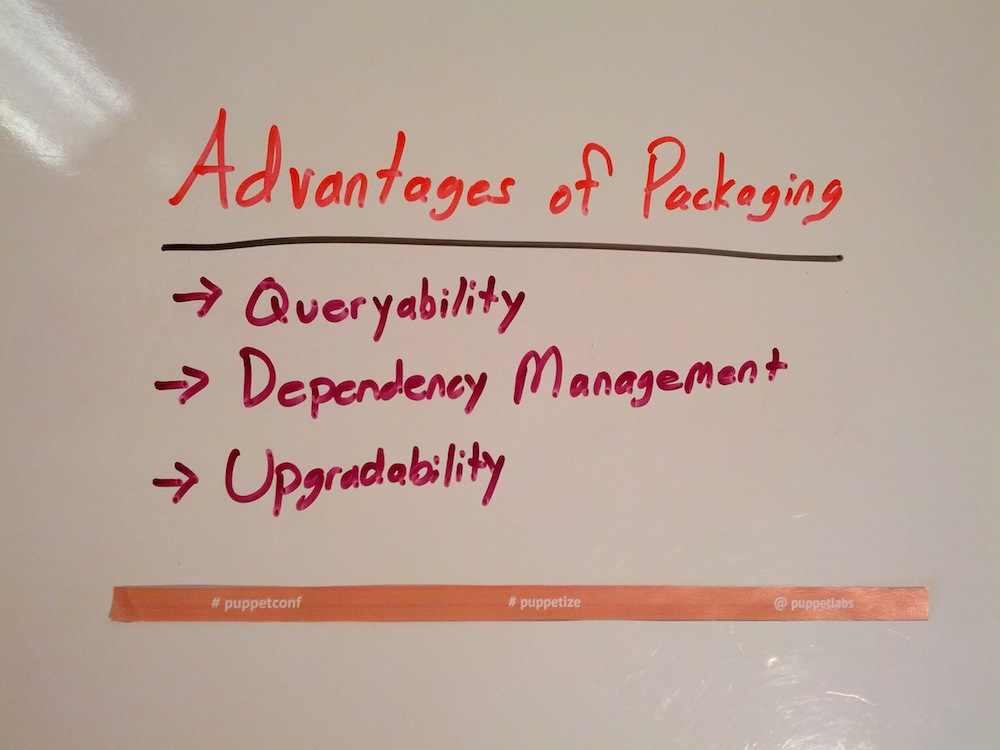 Advantages of Packaging
→ Queryability
→ Dependency Management
→ Upgradability
# puppetconf # puppetize @ puppetlabs